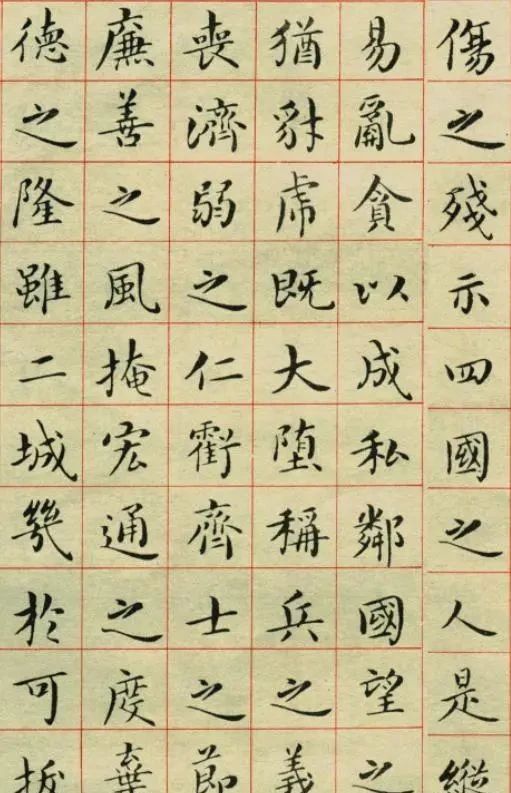 傷之殘示四國之人是縱
易亂貪以成私鄰國望之
猶豺虎既大堕稱兵之義
喪濟弱之仁虧齊士之莭
廉善之風掩宏通之度棄
德之隆雖二城幾於可拔